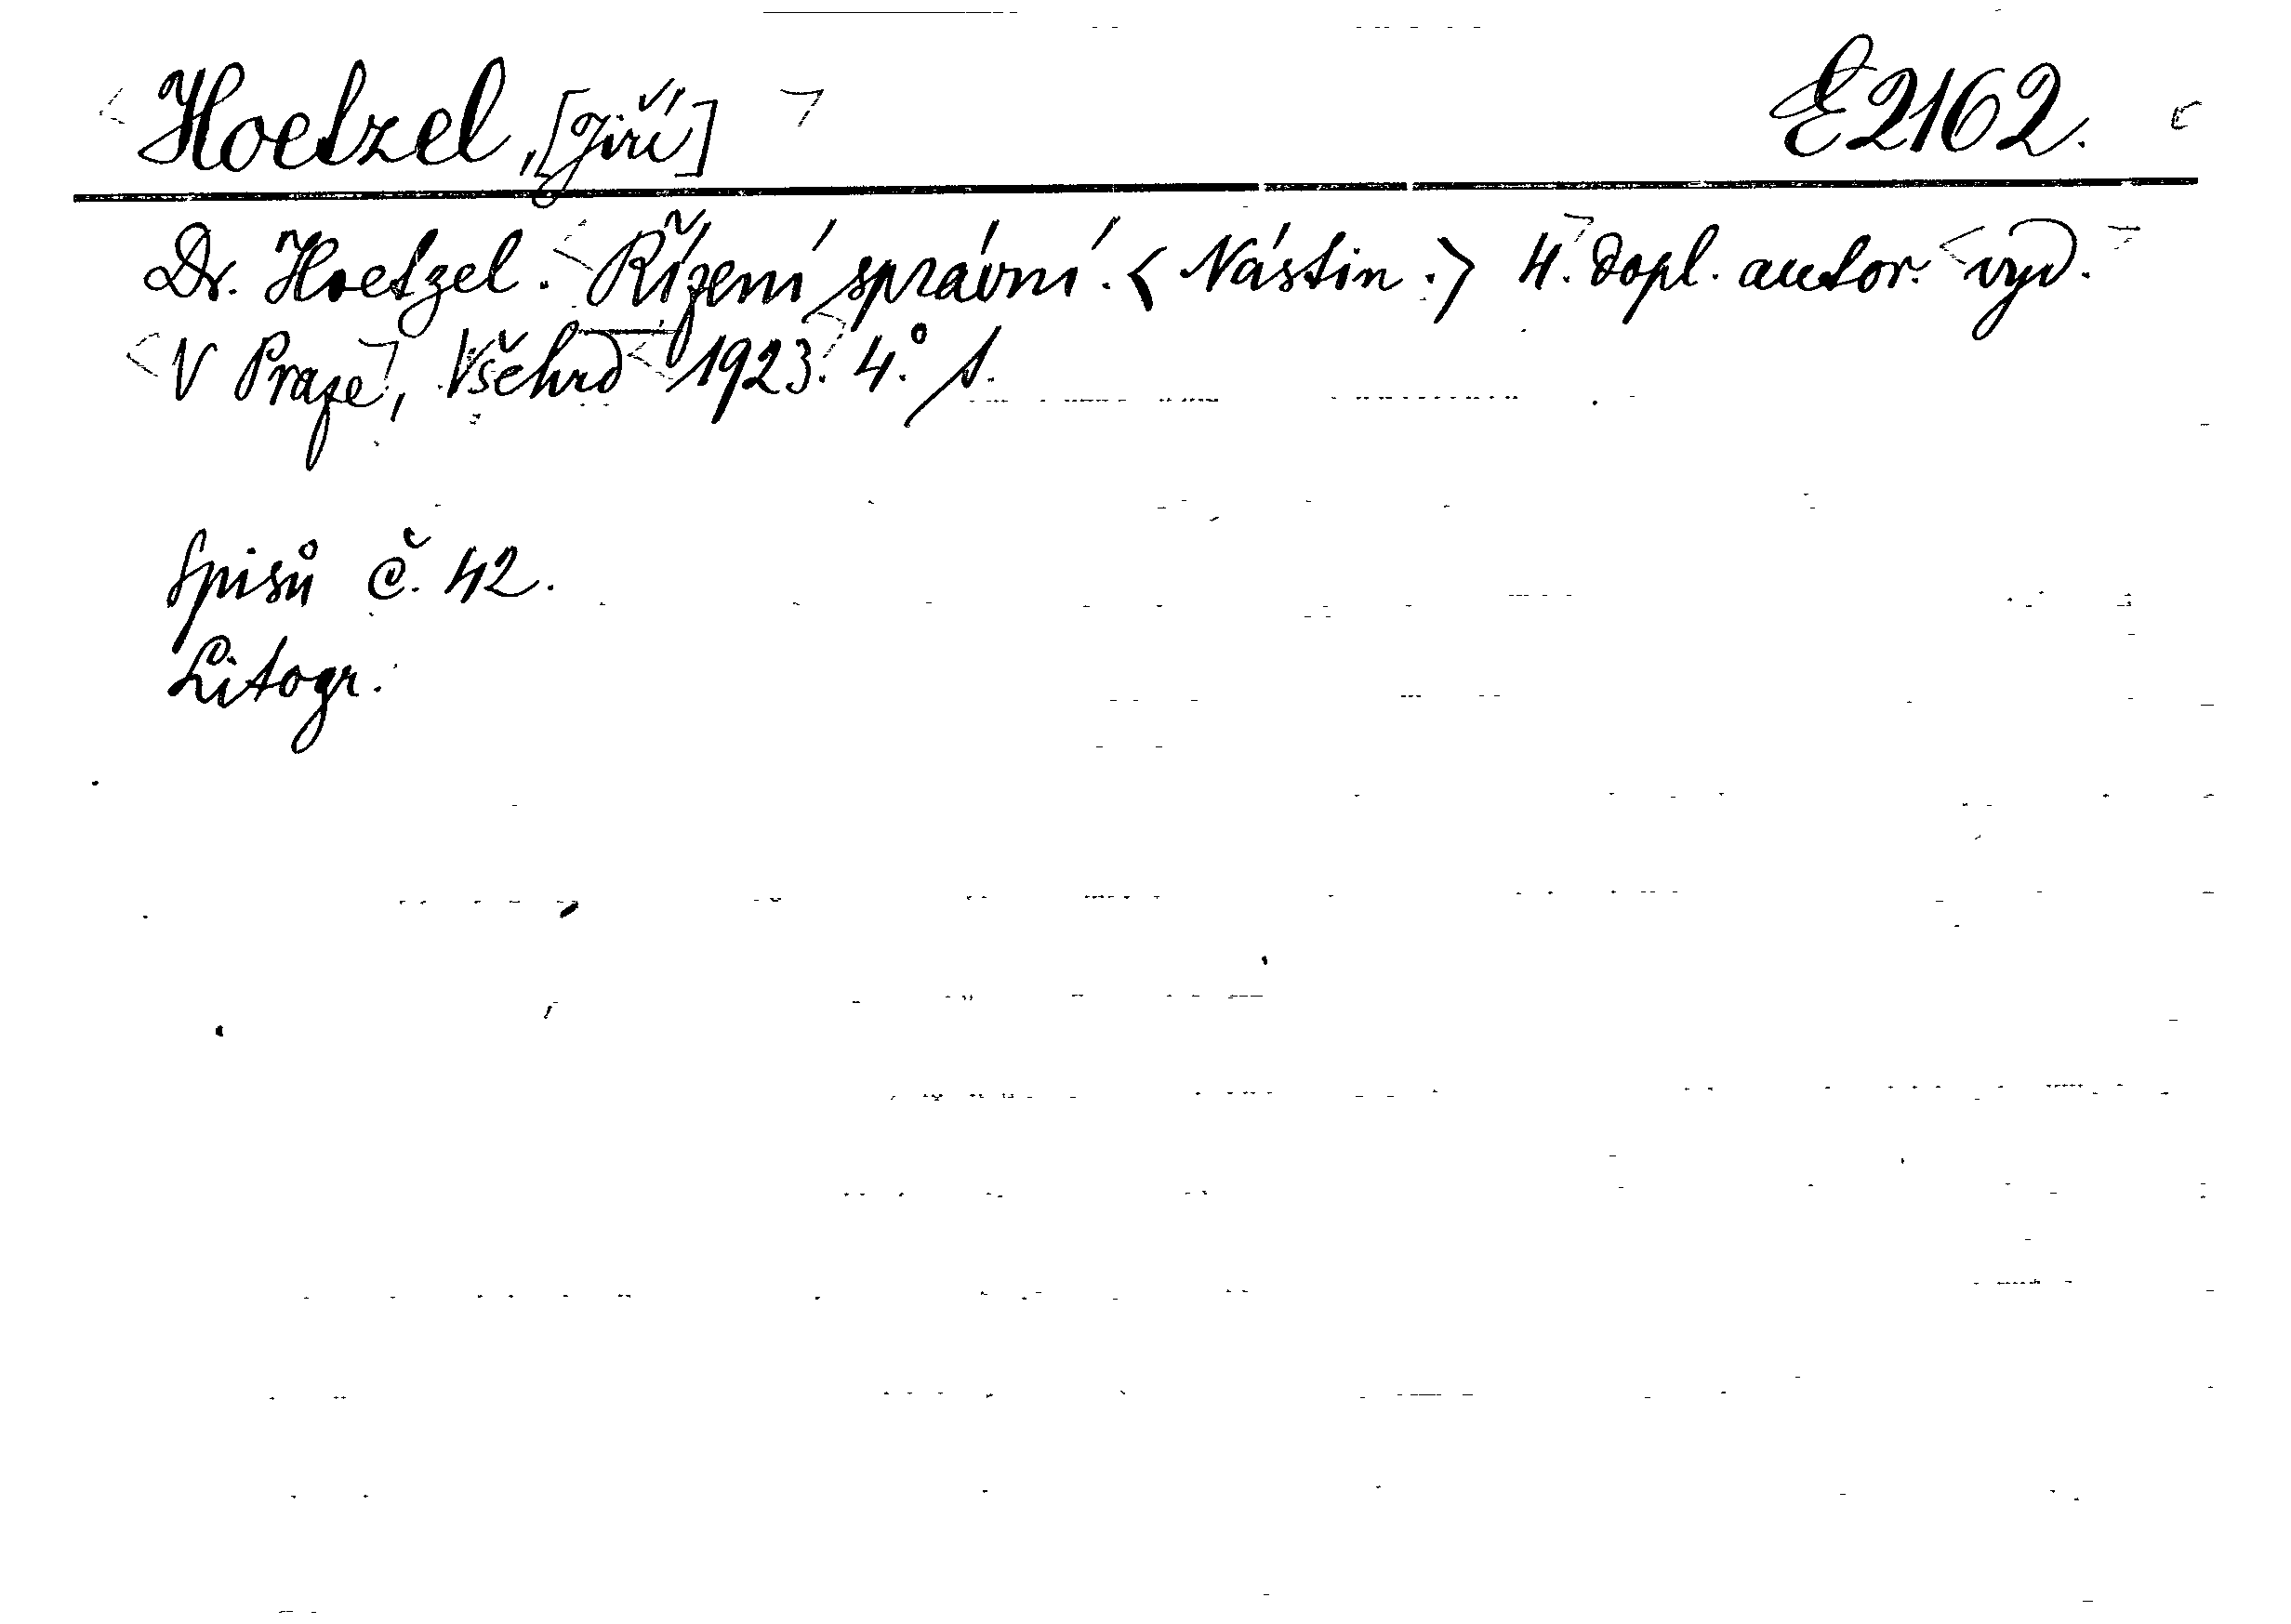 Hoetzel, [Jiří] E2162.
Dr. Hoetzel. Řízení správní. <Nástin.> 4. dopl. autor. vyd.
V Praze, Všehrd 1923. 4.° 1.
Spisů č. 42.
Litogr.